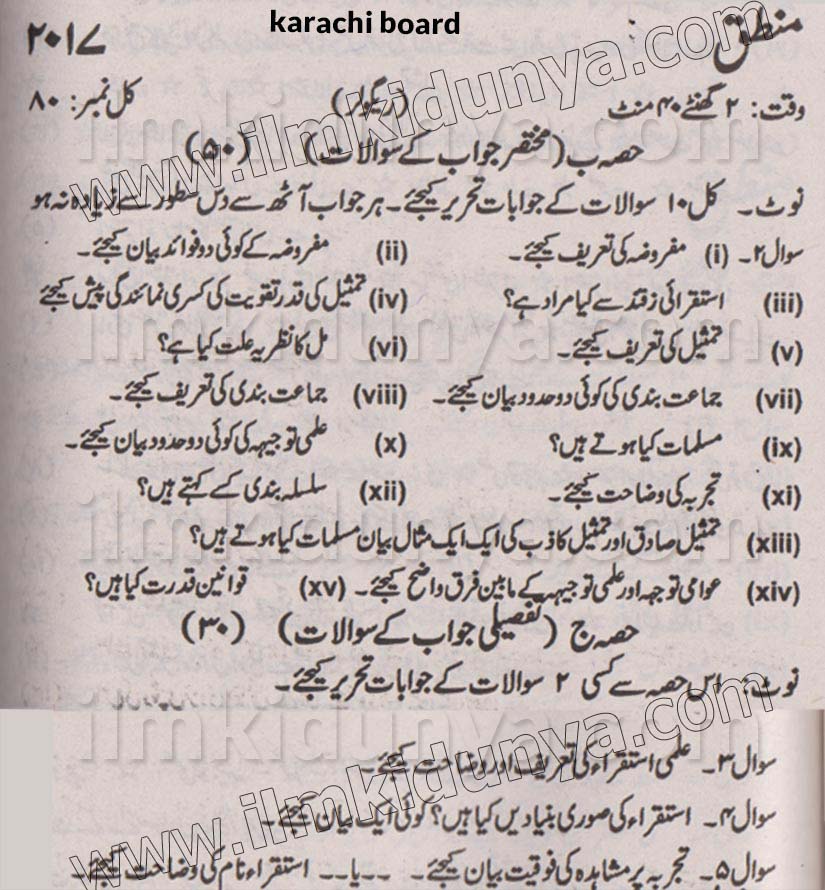 karachi board
منطق ۲۰۱۷
وقت: ۲ گھنٹے ۴۰ منٹ (ریگولر) کل نمبر: ۸۰
حصہ ب (مختصر جواب کے سوالات) (۵۰)
نوٹ۔ کل ۱۰ سوالات کے جوابات تحریر کیجئے۔ ہر جواب آٹھ سے دس سطور سے زیادہ نہ ہو
سوال ۲۔ (i) مفروضہ کی تعریف کیجئے۔ (ii) مفروضہ کے کوئی دو فوائد بیان کیجئے۔
(iii) استقرائی زقند سے کیا مراد ہے؟ (iv) تمثیل کی قدر تقویت کی کسری نمائندگی پیش کیجئے
(v) تمثیل کی تعریف کیجئے۔ (vi) مل کا نظریہ علت کیا ہے؟
(vii) جماعت بندی کی کوئی دو حدود بیان کیجئے۔ (viii) جماعت بندی کی تعریف کیجئے۔
(ix) مسلمات کیا ہوتے ہیں؟ (x) علمی توجیہہ کی کوئی دو حدود بیان کیجئے۔
(xi) تجربہ کی وضاحت کیجئے۔ (xii) سلسلہ بندی کسے کہتے ہیں؟
(xiii) تمثیل صادق اور تمثیل کاذب کی ایک ایک مثال بیان مسلمات کیا ہوتے ہیں؟
(xiv) عوامی توجہہ اور علمی توجیہہ کے مابین فرق واضح کیجئے۔ (xv) قوانین قدرت کیا ہیں؟
حصہ ج (تفصیلی جواب کے سوالات) (۳۰)
نوٹ: اس حصہ سے کسی ۲ سوالات کے جوابات تحریر کیجئے۔
سوال ۳۔ علمی استقراء کی تعریف اور وضاحت کیجئے۔
سوال ۴۔ استقراء کی صوری بنیادیں کیا ہیں؟ کوئی ایک بیان کیجئے۔
سوال ۵۔ تجربہ پر مشاہدہ کی فوقیت بیان کیجئے۔ ۔۔یا۔۔ استقراء تام کی وضاحت کیجئے۔
www.ilmkidunya.com
ilmkidunya.com
ilmkidunya.com
ilmkidunya.com
ilmkidunya.com
www.ilmkidunya.com